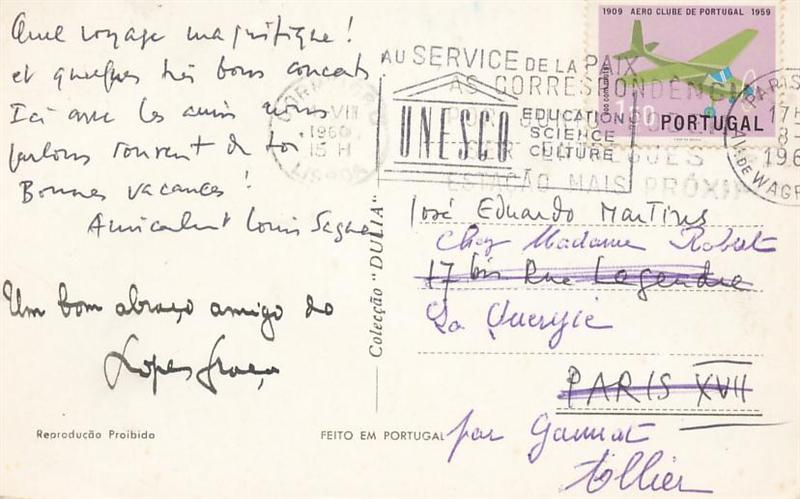 Quel voyage magnifique !
et quelques très bons concerts
Ici avec les amis nous
parlons souvent de toi
Bonnes vacances !
Amicalement Louis Saguer
Um bom abraço amigo do
Lopes Graça
Reprodução Proibida
Colecção "DULIA"
FEITO EM PORTUGAL
1909 AERO CLUBE DE PORTUGAL 1959
1$50
PORTUGAL
AU SERVICE DE LA PAIX
UNESCO
EDUCATION
SCIENCE
CULTURE
AS CORRESPONDÊNCIAS
ESTAÇÃO MAIS PRÓXIM
1960
15 H
LISBOA
PARIS
17H
196
AV. DE WAGR
José Eduardo Martins
Chez Madame Robert
17 bis Rue Legendre
La
PARIS XVII
par Gannat
Allier